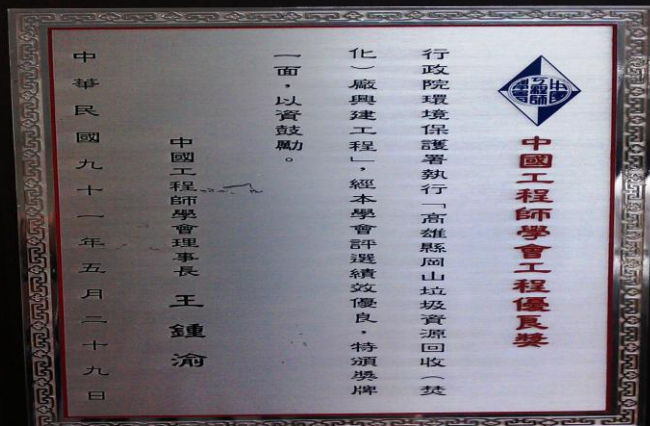 中國工程師學會
中國工程師學會工程優良獎
行政院環境保護署執行「高雄縣岡山垃圾資源回收（焚
化）廠興建工程」，經本學會評選績效優良，特頒獎牌
一面，以資鼓勵。
中國工程師學會理事長 王鍾渝
中華民國九十一年五月二十九日